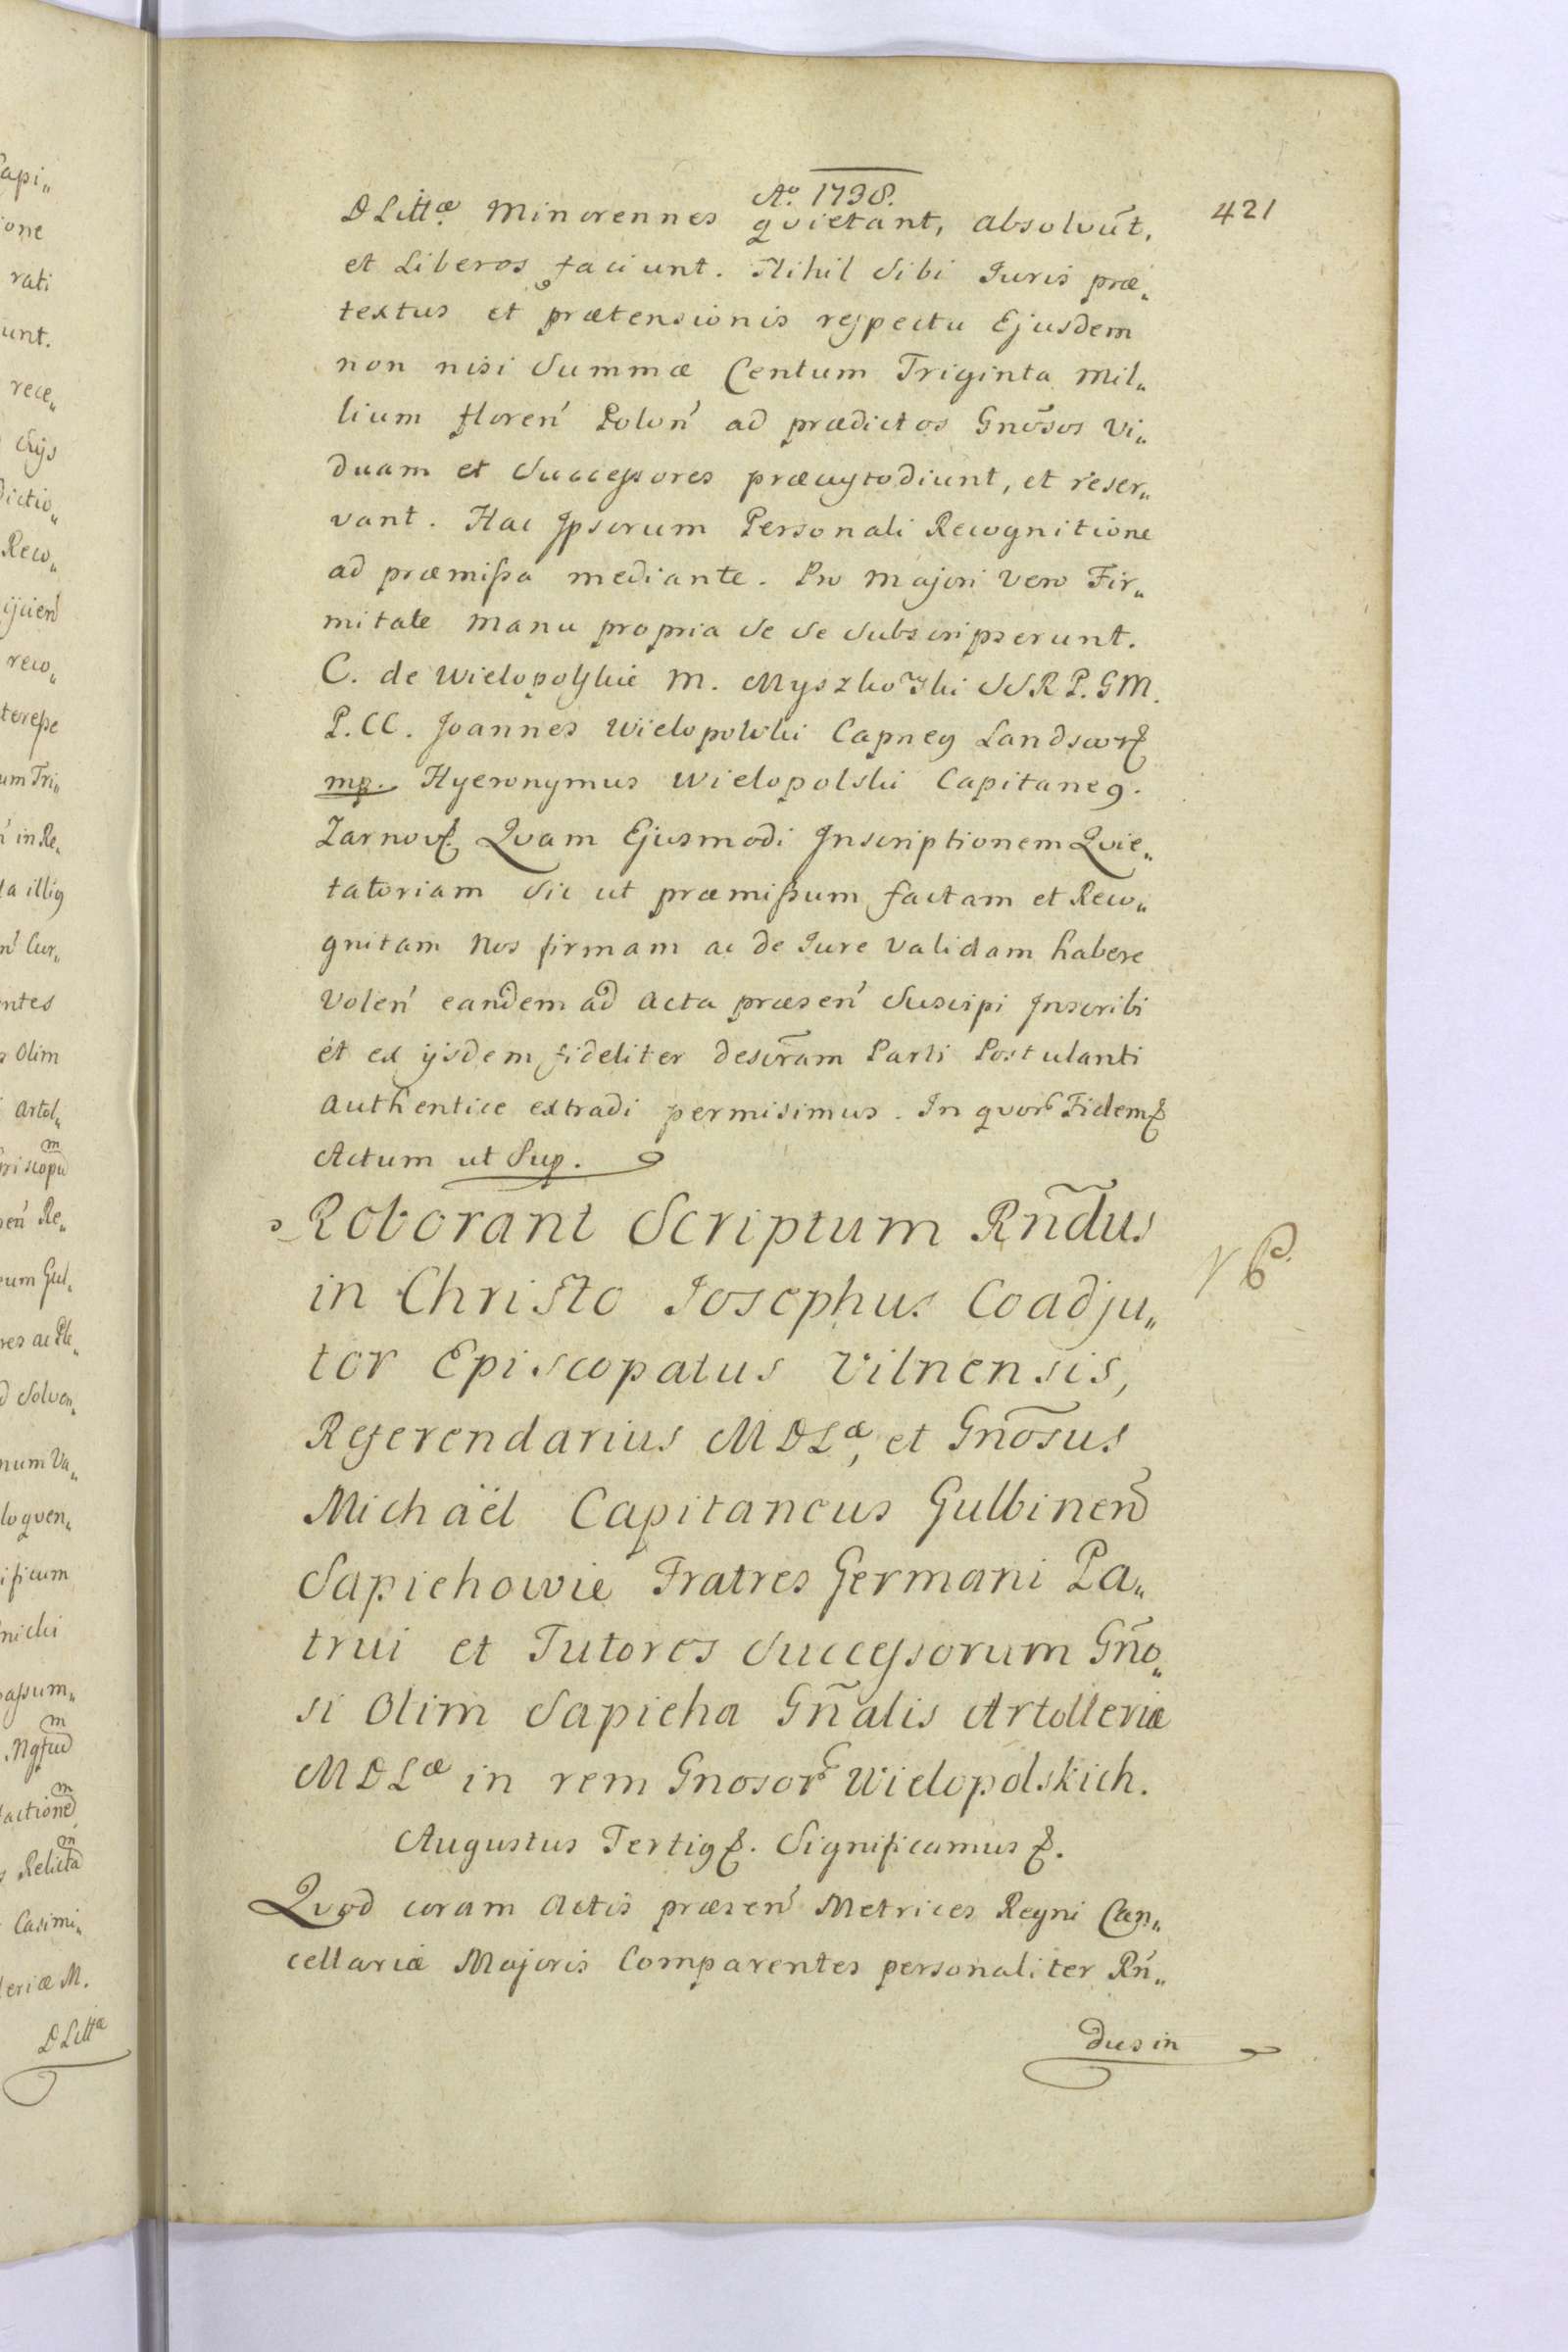 Aº. 1738.
421
D Littæ Minorennes quietant, absolvũt,
et Liberos faciunt. Nihil Sibi Juris præ„
textus et prætensionis respectu Ejusdem
non nisi Summæ Centum Triginta Mil„
lium floreń Poloń ad prædictos Gnõsos Vi„
duam et Successores præcustodiunt, et reser„
vant. Hac Ipsorum Personali Recognitione
ad præmissa mediante. Pro Majori vero Fir„
mitate manu propria se se subscripserunt.
C. de Wielopolskie M. Myszkowski SSR P. GM.
P. CC. Joannes Wielopolski Capneg Landscor
mp. Hyeronymus Wielopolski Capitaneg.
Zarnov. Quam Ejusmodi Inscriptionem Quie„
tatoriam Sic ut præmissum factam et Reco„
gnitam Nos firmam ac de Jure validam habere
Voleń eandem ad Acta præseń Suscipi Inscribi
et ex ijsdem fideliter descr̃am Parti Postulanti
Authentice extradi permisimus. In quor Fidem
Actum ut Sup.
Roborant Scriptum Rñdus
in Christo Josephus Coadju„
tor Episcopatus Vilnensis,
Referendarius MDLæ, et Gnõsus
Michaël Capitaneus Gulbineń
Sapiehowie Fratres Germani Pa„
trui et Tutores Successorum Gño„
si Olim Sapieha Gñalis Artolleriæ
MDLæ in rem Gnosor Wielopolskich.
Augustus Tertig. Significamus.
Quod coram Actis præseń Metrices Regni Can„
cellariæ Majoris Comparentes personaliter Rń„
dus in